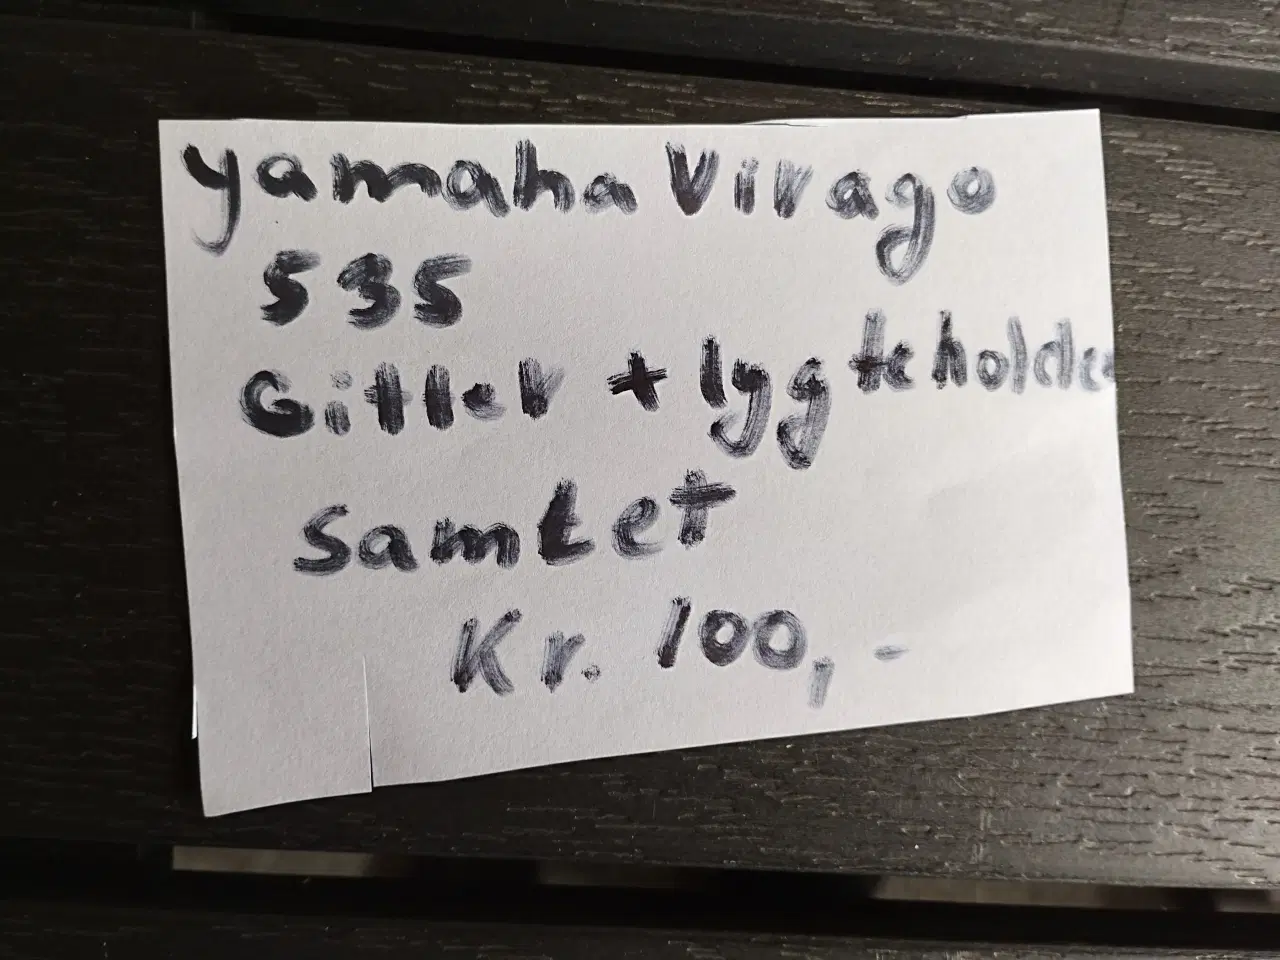 yamaha Virago
535
Gitter + lygteholder
samlet
Kr. 100,-